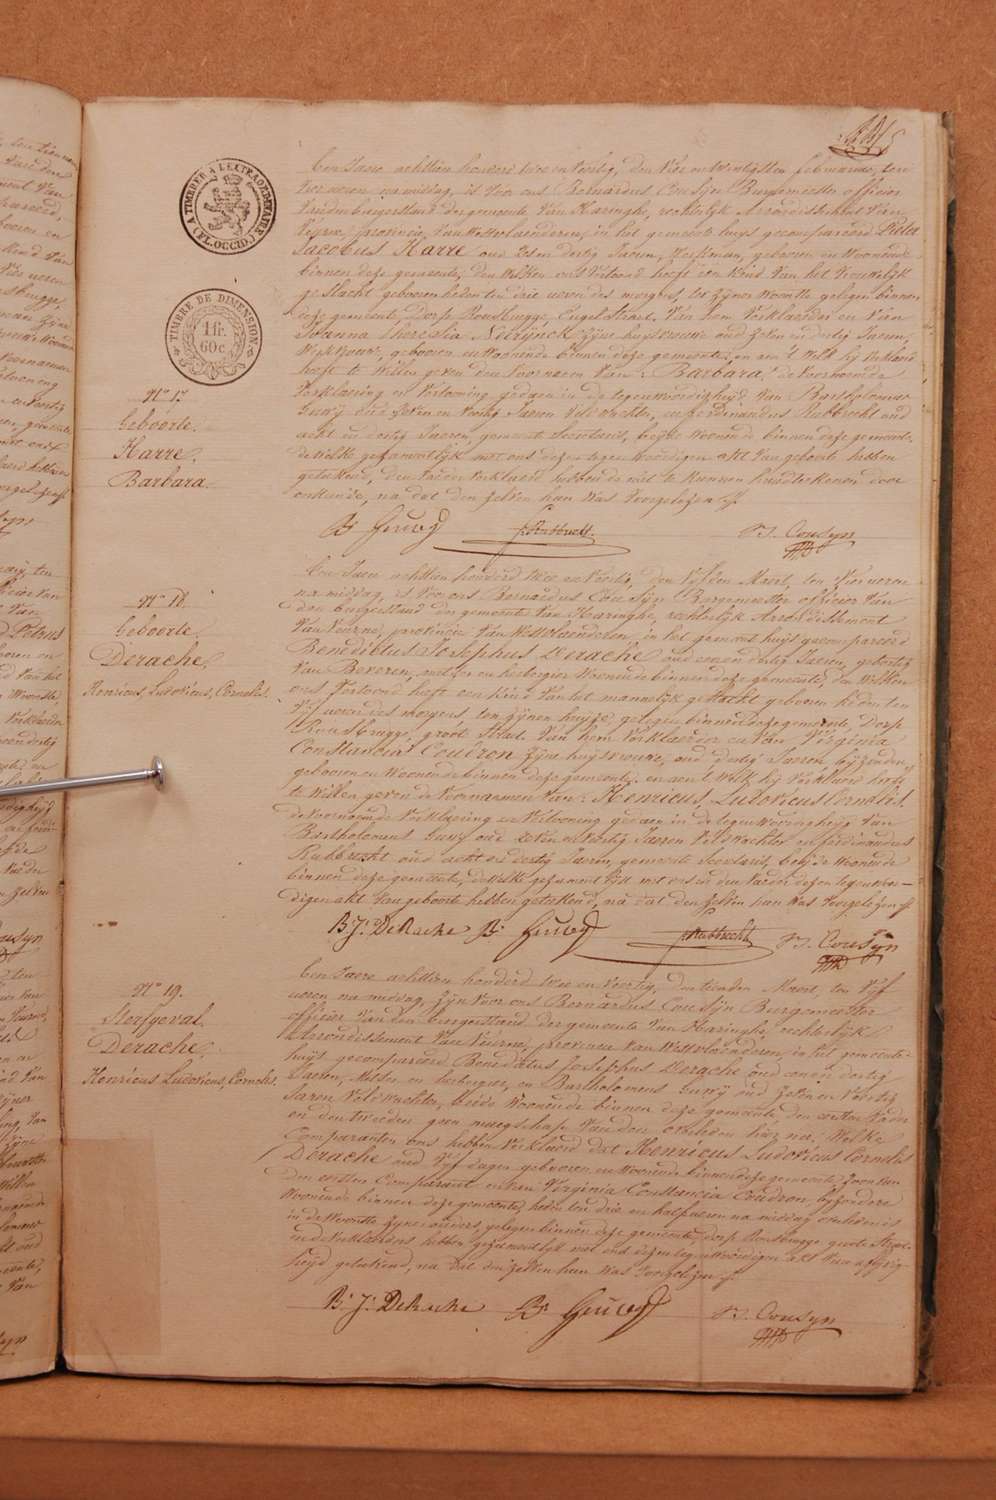 A TIMBRER A L'EXTRAORDINAIRE
(FL. OCCID.)
TIMBRE DE DIMENSION
1 fr.
60 c
N° 17.
Geboorte.
Harre.
Barbara.
Een Jaere achttien honderd twee en veertig, den vier en twintigsten februarius, ten
vier ueren namiddag, is voor ons Bernardus Cousyn Burgemeester officier
van den burgerstand der gemeente van Haringhe, rechterlyk Arrondissement van
Veurne, provincie van Westvlaenderen, in het gemeente huys gecompareerd Pieter
Jacobus Harre oud dertig Jaeren, Werkman, geboren en Woonende
binnen deze gemeente, den welken ons vertoond heeft een kind van het vrouwelyk
geslacht geboren heden ten drie ueren des morgens, ter zyner Woonste gelegen binnen
deze gemeente Dorp Rousbrugge, Engelstraet, van hem verklaerder en van
Joanna Theresia Neirynck zyne huysvrouwe oud zeven en dertig Jaeren,
geboren en Woonende binnen deze gemeente, en aen 't welk hy verklaerd
heeft te willen geven den voornaem van: Barbara, de voornoemde
verklaering en vertooning gedaen in de tegenwoordigheyd van Bartholomeus
Gewy oud zeven en veertig Jaeren veldwachter, en ferdinandus Rubbrecht oud
acht en dertig Jaeren, gemeente secretaris, beyde Woonende binnen deze gemeente
de welke gezamentlyk met ons dezen tegenwoordigen akt van geboorte hebben
geteekend, den vader verklaerd hebbende niet te kunnen handteekenen door
onkunde, na dat den zelven hun was voorgelezen
B. Gewy F. Rubbrecht. B. Cousyn
N° 18.
Geboorte.
Derache.
Henricus, Ludovicus, Cornelis.
Een Jaere achttien honderd twee en veertig, den vyfden Maert, ten vier ueren
na middag, is voor ons Bernardus Cousyn Burgemeester officier van
den burgerstand der gemeente van Haringhe, rechterlyk Arrondissement
van Veurne, provincie van Westvlaenderen, in het gemeente huys gecompareerd
Benedictus Josephus Derache oud een en dertig Jaeren, geboortig
van Beveren, melder en herbergier Woonende binnen deze gemeente, den welken
ons vertoond heeft een kind van het mannelyk geslacht geboren heden ten
vyf ueren des morgens, ten zynen huyze, gelegen binnen deze gemeente, Dorp
Rousbrugge, groote straet van hem verklaerder en van Virginia
Constancia Coudron zyne huysvrouwe, oud dertig Jaeren byzondere
geboren en Woonende binnen deze gemeente, en aen 't welk hy verklaerd heeft
te willen geven de voornaemen van: Henricus, Ludovicus Cornelis.
de voornoemde verklaering en vertooning gedaen in de tegenwoordigheyd van
Bartholomeus Gewy oud zeven en veertig Jaeren veldwachter en ferdinandus
Rubbrecht oud acht en dertig Jaeren, gemeente secretaris, beyde Woonende
binnen deze gemeente, de welke gezamentlyk met ons en den vader dezen tegenwoor-
digen akt van geboorte hebben geteekend, na dat den zelven hun was voorgelezen
B. J. DeRache B. Gewy F. Rubbrecht B. Cousyn
N° 19.
Sterfgeval.
Derache.
Henricus Ludovicus, Cornelis.
Een Jaere achttien honderd twee en veertig, den tienden Maert, ten vyf
ueren na middag, zyn voor ons Bernardus Cousyn Burgemeester
officier van den burgerstand der gemeente van Haringhe, rechterlyk
Arrondissement van Veurne, provincie van Westvlaenderen, in het gemeente-
huys gecompareerd Benedictus Josephus Derache oud een en dertig
Jaeren, Melder en herbergier, en Bartholomeus Gewy oud zeven en veertig
Jaeren veldwachter, beide Woonende binnen deze gemeente den eersten Vader
en den tweeden geen maegschap van den overleden hier na. Welke
Comparanten ons hebben verklaerd dat Henricus Ludovicus Cornelis
Derache oud vyf dagen geboren en Woonende binnen deze gemeente Zoon van
den eersten Comparant en van Virginia Constancia Coudron byzondere
Woonende binnen deze gemeente, heden ten drie en half ueren na middag overleden is
in de Woonste zyner ouders, gelegen binnen deze gemeente, dorp Rousbrugge groote straet
en de verklaerders hebben gezamentlyk met ons dezen tegenwoordigen akt van
geteekend, na dat den zelven hun was voorgelezen
B. J. DeRache B. Gewy B. Cousyn